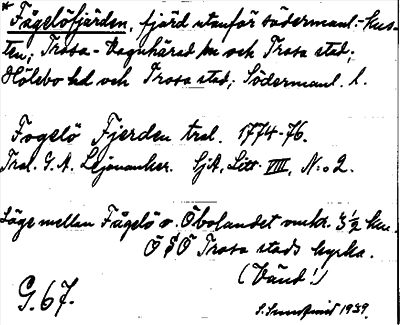 * Fågelöfjärden, fjärd utanför södermanl.-kus-
ten; Trosa-Vagnhärad sn och Trosa stad;
Hölebo hd och Trosa stad; Södermanl. l.
Fogelö Fjerden tral. 1774-76.
Tral. G. A. Lejonanker. SjK, Litt. VIII, N:o 2.
Läge mellan Fågelö o. Öbolandet omkr. 3 1/2 km.
Ö S Ö Trosa stads kyrka.
(Vänd!)
G. 67.
1939.